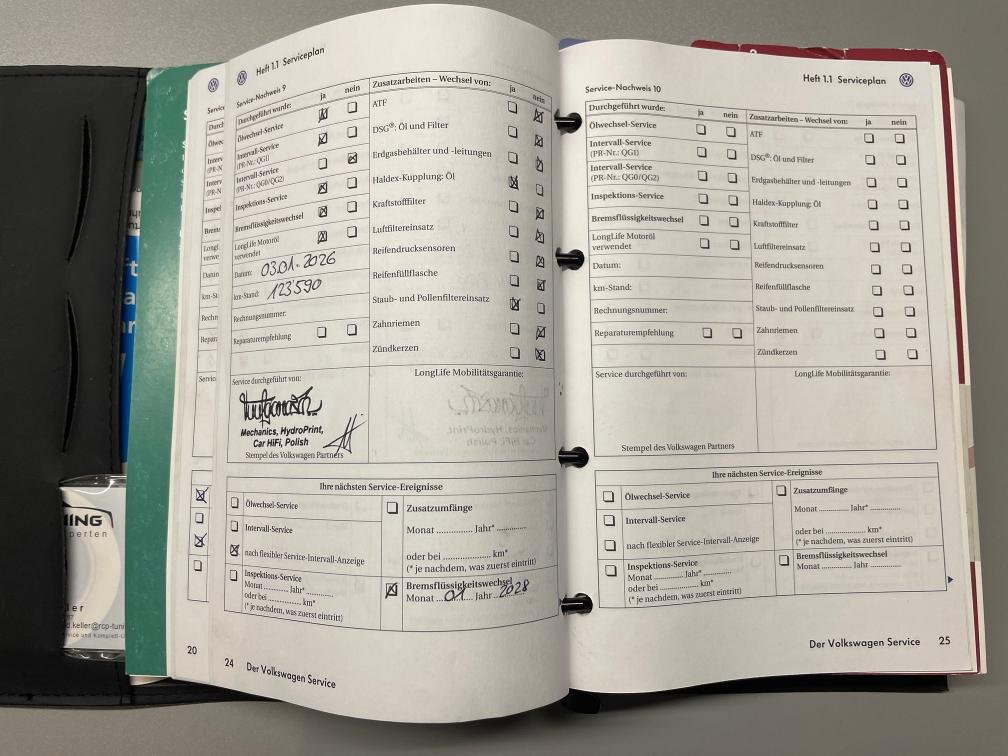 Heft 1.1 Serviceplan
Service-Nachweis 9
Durchgeführt wurde:
ja
nein
Ölwechsel-Service
Intervall-Service
(PR-Nr.: QG1)
Intervall-Service
(PR-Nr.: QG0/QG2)
Inspektions-Service
Bremsflüssigkeitswechsel
LongLife Motoröl
verwendet
Datum: 03.01.2026
km-Stand: 123'590
Rechnungsnummer:
Reparaturempfehlung
Zusatzarbeiten – Wechsel von:
ja
nein
ATF
DSG®: Öl und Filter
Erdgasbehälter und -leitungen
Haldex-Kupplung: Öl
Kraftstofffilter
Luftfiltereinsatz
Reifendrucksensoren
Reifenfüllflasche
Staub- und Pollenfiltereinsatz
Zahnriemen
Zündkerzen
Service durchgeführt von:
Mechanics, HydroPrint,
Car HiFi, Polish
Stempel des Volkswagen Partners
LongLife Mobilitätsgarantie:
Ihre nächsten Service-Ereignisse
Ölwechsel-Service
Intervall-Service
nach flexibler Service-Intervall-Anzeige
Inspektions-Service
Monat ............ Jahr* ............
oder bei ............ km*
(* je nachdem, was zuerst eintritt)
Zusatzumfänge
Monat ............ Jahr* ............
oder bei ............ km*
(* je nachdem, was zuerst eintritt)
Bremsflüssigkeitswechsel
Monat 01 Jahr 2028
20
24 Der Volkswagen Service
Heft 1.1 Serviceplan
Service-Nachweis 10
Durchgeführt wurde:
ja
nein
Ölwechsel-Service
Intervall-Service
(PR-Nr.: QG1)
Intervall-Service
(PR-Nr.: QG0/QG2)
Inspektions-Service
Bremsflüssigkeitswechsel
LongLife Motoröl
verwendet
Datum:
km-Stand:
Rechnungsnummer:
Reparaturempfehlung
Zusatzarbeiten – Wechsel von:
ja
nein
ATF
DSG®: Öl und Filter
Erdgasbehälter und -leitungen
Haldex-Kupplung: Öl
Kraftstofffilter
Luftfiltereinsatz
Reifendrucksensoren
Reifenfüllflasche
Staub- und Pollenfiltereinsatz
Zahnriemen
Zündkerzen
Service durchgeführt von:
Stempel des Volkswagen Partners
LongLife Mobilitätsgarantie:
Ihre nächsten Service-Ereignisse
Ölwechsel-Service
Intervall-Service
nach flexibler Service-Intervall-Anzeige
Inspektions-Service
Monat ............ Jahr* ............
oder bei ............ km*
(* je nachdem, was zuerst eintritt)
Zusatzumfänge
Monat ............ Jahr* ............
oder bei ............ km*
(* je nachdem, was zuerst eintritt)
Bremsflüssigkeitswechsel
Monat ............ Jahr ............
Der Volkswagen Service 25